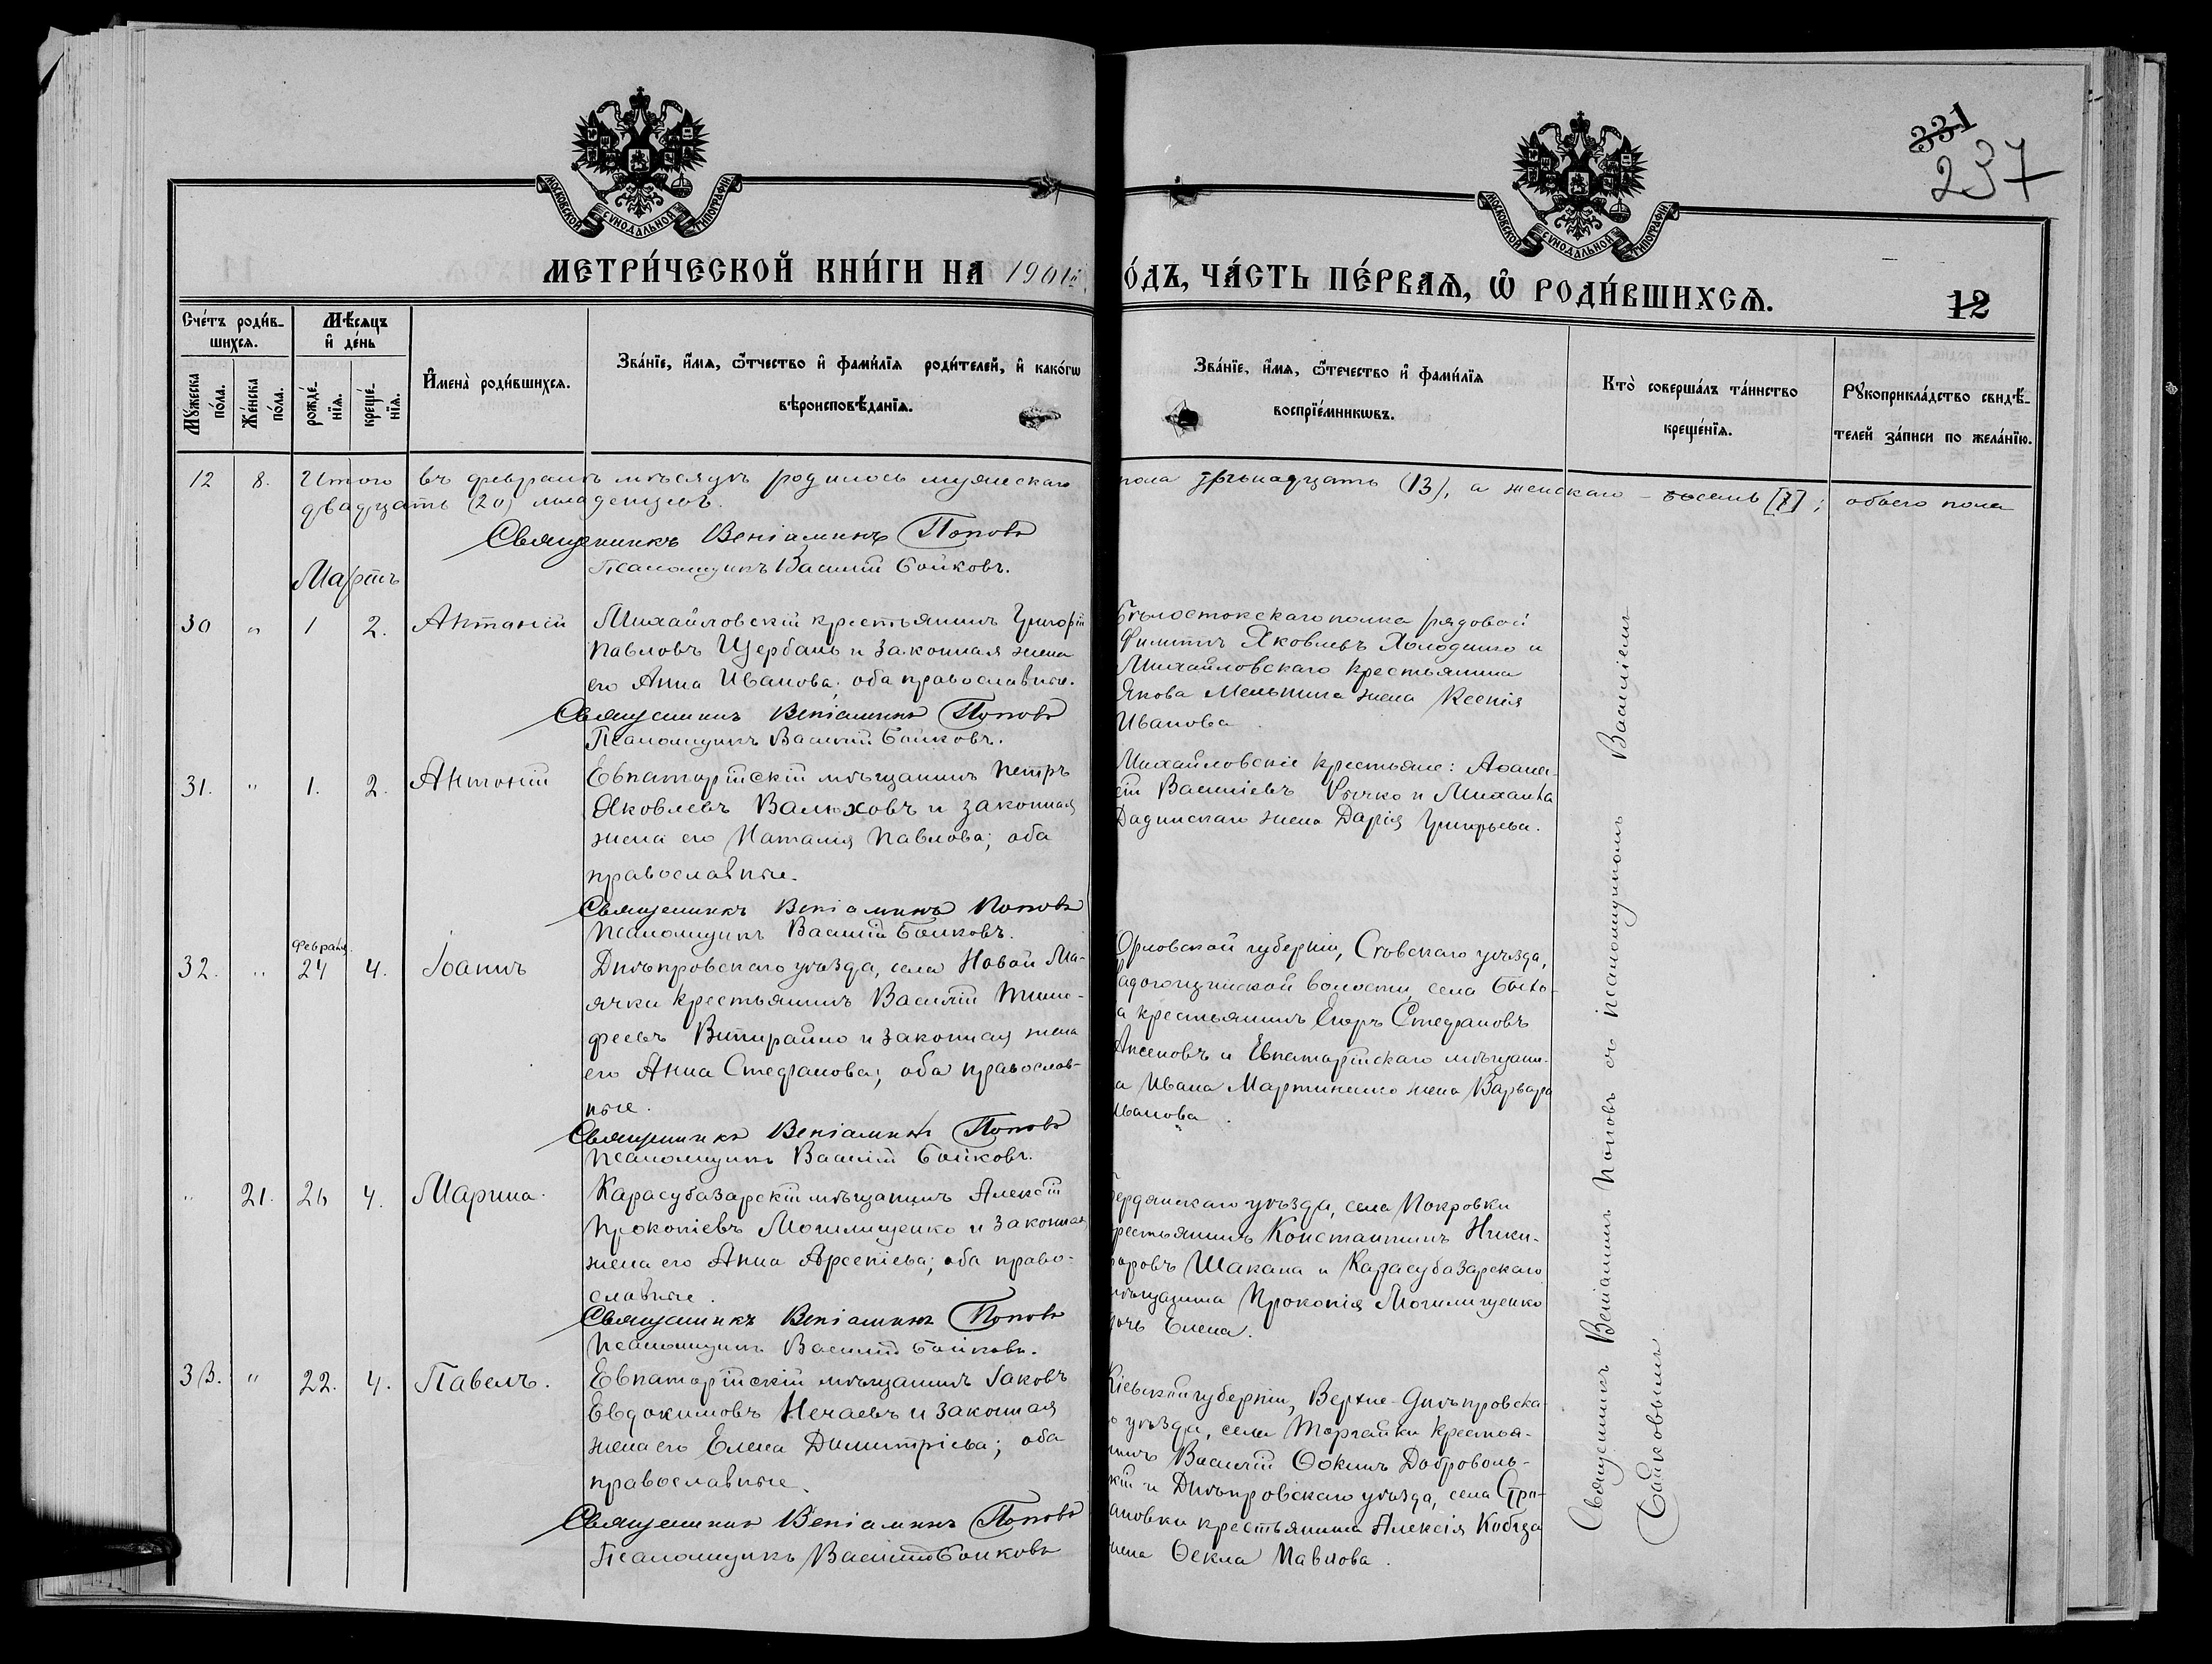 МОСКОВСКОЙ СѴНОДАЛЬНОЙ ТИПОГРАФІИ
МОСКОВСКОЙ СѴНОДАЛЬНОЙ ТИПОГРАФІИ
331
237
МЕТРИ́ЧЕСКОЙ КНИ́ГИ НА 1901
О́ДЪ, ЧА́СТЬ ПЕ́РВАѦ, Ѡ҆ РОДИ́ВШИХСѦ.
12
Сче́тъ роди́в-
шихся.
Мꙋ́жеска по́ла.
Же́нска по́ла.
Мѣ́сяцъ
и҆ де́нь
рожде́-
нїя.
креще́-
нїя.
И҆мена̀ роди́вшихся.
Зва́нїе, и҆́мя, ѻ҆́тчество и҆ фами́лїя роди́телей, и҆ како́гѡ
вѣроисповѣ́данїя.
Зва́нїе, и҆́мя, ѻ҆́течество и҆ фами́лїя
воспрїе́мникѡвъ.
Кто̀ соверша́лъ та́инство
креще́нїя.
Рꙋкоприкла́дство свидѣ́-
телей за́писи по жела́нїю.
12 8. Итого въ февралѣ мѣсяцѣ родилось мужескаго
пола трѣнадцать (13), а женскаго – восемь [7]; обоего пола
двадцать (20) младенцевъ.
Священникъ Веніаминъ Поповъ
Псаломщикъ Василій Бойковъ.
Мартъ
30 " 1 2. Антоній Михайловскій крестьянинъ Григорій
Павловъ Щербань и законная жена
его Анна Иванова; оба православные.
Священникъ Веніаминъ Поповъ
Псаломщикъ Василій Бойковъ.
Бѣлостокскаго полка рядовой
Филиппъ Яковлевъ Холоденко и
Михайловскаго крестьянина
Якова Мельника жена Ксенія
Иванова.
31. " 1. 2. Антоній Евпаторійскій мѣщанинъ Петръ
Яковлевъ Валюховъ и законная
жена его Наталія Павлова; оба
православные.
Священникъ Веніаминъ Поповъ
Псаломщикъ Василій Бойковъ.
Михайловскіе крестьяне: Аѳана-
сій Василіевъ и Михаила
Дадинскаго жена Дарія Григорьева.
Февраля.
32. " 24 4. Іоаннъ Днѣпровскаго уѣзда, села Новой Ма-
ячки крестьянинъ Василій Тимо-
феевъ и законная жена
его Анна Стефанова; оба православ-
ные.
Священникъ Веніаминъ Поповъ
Псаломщикъ Василій Бойковъ.
Орловской губерніи, Сѣвскаго уѣзда,
адогощинской волости, села
а крестьянинъ Егоръ Стефановъ
Аксеновъ и Евпаторійскаго мѣщани-
а Ивана Мартиненко жена Варвара
Иванова.
" 21. 26 4. Марина. Карасубазарскій мѣщанинъ Алексій
Прокопіевъ Могилищенко и законная
жена его Анна Арсеніева; оба право-
славные.
Священникъ Веніаминъ Поповъ
Псаломщикъ Василій Бойковъ.
Бердянскаго уѣзда, села Покровки
рестьянинъ Константинъ Ники-
форовъ Шакана и Карасубазарскаго
мѣщанина Прокопія Могилищенко
дочь Елена.
33. " 22. 4. Павелъ. Евпаторійскій мѣщанинъ Іаковъ
Евдокимовъ Нечаевъ и законная
жена его Елена Димитріева; оба
православные.
Священникъ Веніаминъ Поповъ
Псаломщикъ Василій Бойковъ
Кіевской губерніи, Верхне-Днѣпровска-
о уѣзда, села Торгайки крестья-
нинъ Василій Ѳокинъ Доброволь-
кій и Днѣпровскаго уѣзда, села Стри-
ановки крестьянина Алексія Кобза
жена Ѳекла Павлова.
Священникъ Веніаминъ Поповъ съ псаломщикомъ Василіемъ
Бойковымъ.